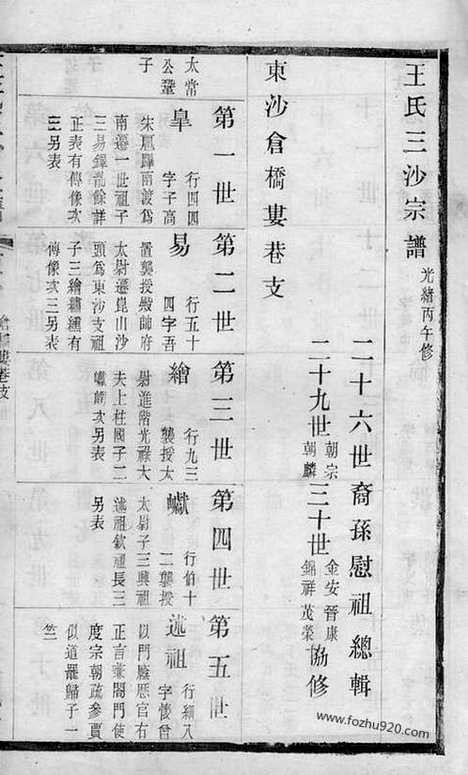 王氏三沙宗譜 光緒丙午修
二十六世裔孫慰祖總輯
二十九世朝宗 朝麟 三十世金安 晉康 錦祥 茂榮 協修
東沙倉橋婁巷支
第一世
第二世
第三世
第四世
第五世
太常
公鞏
子
皐 行四四
字子高
南遷一世祖子
三易
正表有傳像次
三另表
易 行五十
四字吾
置襲授殿帥府
太尉遷崑山沙
頭爲東沙支祖
子三繪 有
傳像次三另表
繪 行九三
襲授太
尉進階光祿大
夫上柱國子二
次另表
行伯十
二襲授
太尉子三興祖
述祖欽祖長三
另表
述祖
以門廕歷官右
正言兼閤門使
度宗朝疏參賈
似道罷歸子一
竺
www.fozhu920.com